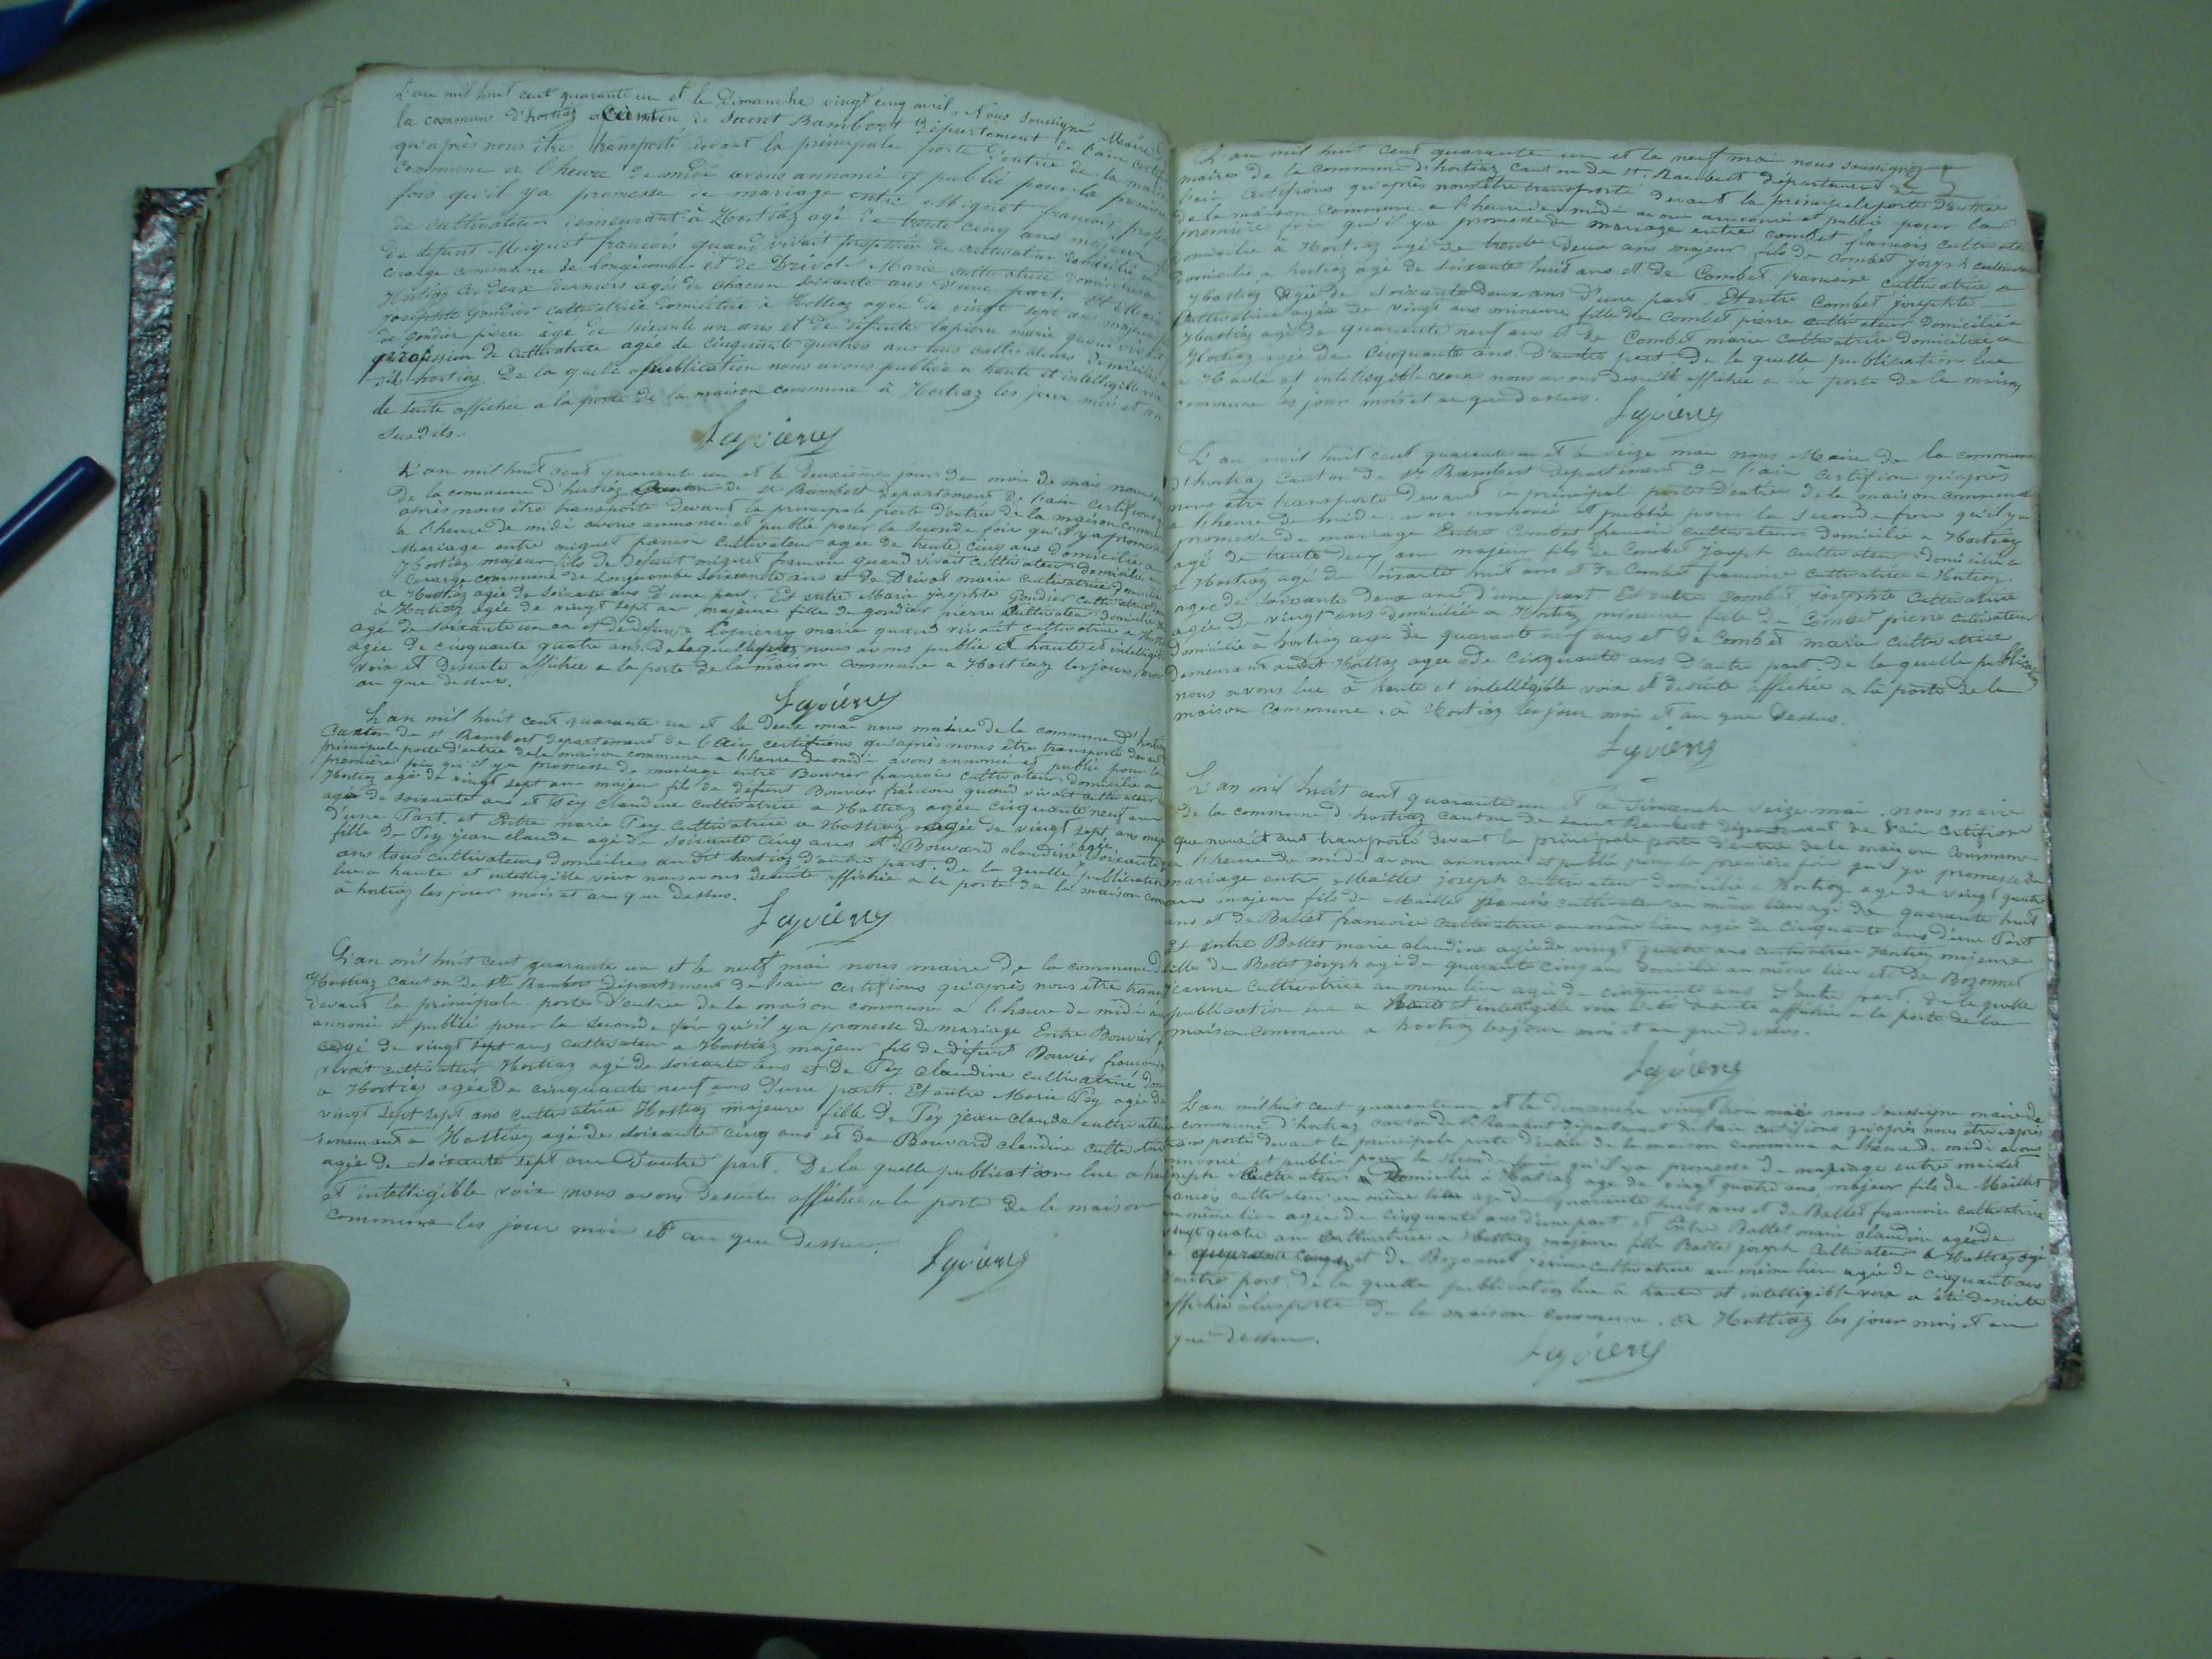 L'an mil huit cent quarante un et le Dimanche vingt cinq avril, Nous soussigné Maire de
la commune d'hostiaz Canton de Saint Rambert département de l'ain certifions
qu'après nous être transporté devant la principale porte d'entrée de la maison
commune a l'heure de midi avons annoncé et publié pour la première
fois qu'il y a promesse de mariage entre Miguet francois profession
de cultivateur demeurant à Hostiaz agé de trente cinq ans majeur fils
de défunt Miguet francois quand vivait profession de cultivateur domicilié a
commune de Longecombe et de Drivot Marie cultivatrice domiciliée a
Hostiaz ces deux derniers agés de chacun soixante ans d'une part. Et Marie
josephte Gondier cultivatrice domiciliée à Hostiaz agée de vingt sept ans majeure fille
de gondier pierre âgé de soixante un ans et de défunte lapierre marie quand vivait
profession de cultivatrice agée de cinquante quatres ans tous cultivateurs domiciliés
hostiaz. De la quelle publication nous avons publiée a haute et intelligible voix
de suite affichée a la porte de la maison commune à Hostiaz les jour mois et an
susdits.
Lapierre
L'an mil huit cent quarante un et le deuxième jour du mois de mai nous
de la commune d'hostiaz Canton de st Rambert departement de l'ain certifions
après nous être transporté devant la principale porte d'entrée de la maison commune
a l'heure de midi avons annoncé et publié pour la seconde fois qu'il y a promesse
Mariage entre miguet francois cultivateur agée de trente cinq ans domicilié a
Hostiaz majeur fils de défunt miguet francois quand vivait cultivateur domicilié a
commune de Longecombe soixante ans et de Drivot marie cultivatrice
a Hostiaz agée de soixante ans d'une part. Et entre Marie josephte Gondier cultivatrice
à Hostiaz agée de vingt sept ans majeure fille de gondier pierre cultivateur
agé de soixante un an et de défunte Lapierre marie quand vivait cultivatrice a
agée de cinquante quatre ans. De laquelle nous avons publié a haute et intelligible
voix et desuite affichée a la porte de la maison commune a Hostiaz les jour
an que dessus.
Lapierre
L'an mil huit cent quarante un et le deux mai nous maire de la commune d'hostiaz
Canton de st Rambert departement de l'ain certifions qu'après nous être transporté devant
principale porte d'entrée de la maison commune a l'heure de midi avons annoncé et publié pour la
première fois qu'il y a promesse de mariage entre Bouvier francois cultivateur domicilié a
Hostiaz agé de vingt sept ans majeur fils de défunt Bouvier francois quand vivait cultivateur
agé de soixante ans et Pey claudine cultivatrice a Hostiaz agée cinquante neuf ans
d'une Part. et Entre marie Pey cultivatrice a Hostiaz agée de vingt sept ans
fille de Pey jean claude agé de soixante cinq ans et Bouvard claudine agée soixante
ans tous cultivateurs domiciliés au dit hostiaz d'autre part. de la quelle publication
lue a haute et intelligible voix nous avons desuite affichée a la porte de la maison
à hostiaz les jour mois et an que dessus.
Lapierre
L'an mil huit cent quarante un et le neuf mai nous maire de la commune
Hostiaz canton de st Rambert département de l'ain certifions qu'après nous être
devant la principale porte d'entrée de la maison commune a l'heure de midi
annoncé et publié pour la seconde fois qu'il y a promesse de mariage Entre Bouvier
agé de vingt sept ans cultivateur a Hostiaz majeur fils de défunt Bouvier francois
vivait cultivateur Hostiaz agé de soixante ans et de Pey claudine cultivatrice
a Hostiaz agée de cinquante neuf ans d'une part. Et entre Marie Pey agée de
vingt sept sept ans cultivatrice Hostiaz majeure fille de Pey jean claude cultivateur
demeurant a Hostiaz agé de soixante cinq ans et de Bouvard claudine
agée de soixante sept ans d'autre part. De la quelle publication lue a
et intelligible voix nous avons desuite affichée a la porte de la maison
commune les jour mois et an que dessus.
Lapierre
L'an mil huit cent quarante un et le neuf mai nous soussigné
maire de la commune d'hostiaz canton de st Rambert département de
l'ain certifions qu'après nous être transporté devant la principale porte d'entrée
de la maison commune a l'heure de midi avons annoncé et publié pour la
première fois qu'il y a promesse de mariage entre combet francois cultivateur
domicilié à Hostiaz agé de trente deux ans majeur fils de Combet joseph cultivateur
domicilié a hostiaz agé de soixante huit ans et de Combet francoise cultivatrice a
Hostiaz agée de soixante deux ans d'une part. Et entre Combet josephte
Cultivatrice agée de vingt ans mineure fille de Combet pierre cultivateur domicilié a
Hostiaz agé de quarante neuf ans et de Combet marie cultivatrice domiciliée a
Hostiaz agée de cinquante ans d'autre part. De la quelle publication lue
a Haute et intelligible voix nous avons desuite affichée a la porte de la maison
commune les jour mois et an que dessus.
Lapierre
L'an mil huit cent quarante un et le seize mai nous Maire de la commune
d'hostiaz Canton de st Rambert departement de l'ain certifions qu'après
nous être transporté devant la principale porte d'entrée de la maison commune
a l'heure de midi avons annoncé et publié pour la seconde fois qu'il y a
promesse de mariage Entre Combet francois cultivateur domicilié a Hostiaz
agé de trente deux ans majeur fils de Combet joseph cultivateur domicilié a
Hostiaz agé de soixante huit ans et de Combet francoise cultivatrice a Hostiaz
agée de soixante deux ans d'une part Et entre Combet josephte cultivatrice
agée de vingt ans domiciliée a Hostiaz mineure fille de Combet pierre cultivateur
domicilié à hostiaz agé de quarante neuf ans et de Combet marie cultivatrice
demeurant audit Hostiaz agée de cinquante ans d'autre part. de la quelle publication
nous avons lue à haute et intelligible voix et desuite affichée a la porte de la
maison commune. à Hostiaz les jour mois et an que dessus.
Lapierre
L'an mil huit cent quarante un et le Dimanche seize mai. nous maire
de la commune d'hostiaz canton de saint Rambert département de l'ain certifions
que nous étant transporté devant la principale porte d'entrée de la maison commune
a l'heure de midi avons annoncé et publié pour la première fois qu'il y a promesse de
mariage entre Maillet joseph cultivateur domicilié a Hostiaz agé de vingt quatre
ans majeur fils de Maillet francois cultivateur au même lieu agé de quarante huit
ans et de Ballet francoise cultivatrice au même lieu agée de cinquante ans d'une Part
Et entre Ballet marie claudine agée de vingt quatre ans cultivatrice Hostiaz majeure
fille de Ballet joseph agé de quarante cinq ans domicilié au même lieu et de Bozonnet
jeanne cultivatrice au même lieu agée de cinquante ans d'autre part. de la quelle
publication lue a haute et intelligible voix a été desuite affichée a la porte de la
maison commune a hostiaz les jour mois et an que dessus.
Lapierre
L'an mil huit cent quarante un et le dimanche vingt trois mai nous soussigné maire de
commune d'hostiaz canton de st Rambert département de l'ain certifions qu'après nous être
transporté devant la principale porte d'entrée de la maison commune a l'heure de midi avons
annoncé et publié pour la seconde fois qu'il y a promesse de mariage entre maillet
joseph Cultivateur Domicilié à Hostiaz agé de vingt quatre ans majeur fils de Maillet
francois cultivateur au même lieu agé de quarante huit ans et de Ballet francoise cultivatrice
au même lieu agée de cinquante ans d'une part et Entre Ballet marie claudine agée de
vingt quatre ans cultivatrice a Hostiaz majeure fille Ballet joseph cultivateur a Hostiaz agé
quarante cinq et de Bozonnet jeanne cultivatrice au même lieu agée de cinquante ans
d'autre part. de la quelle publication lue à haute et intelligible voix a été desuite
affichée à la porte de la maison commune. a Hostiaz les jour mois et an
que dessus.
Lapierre